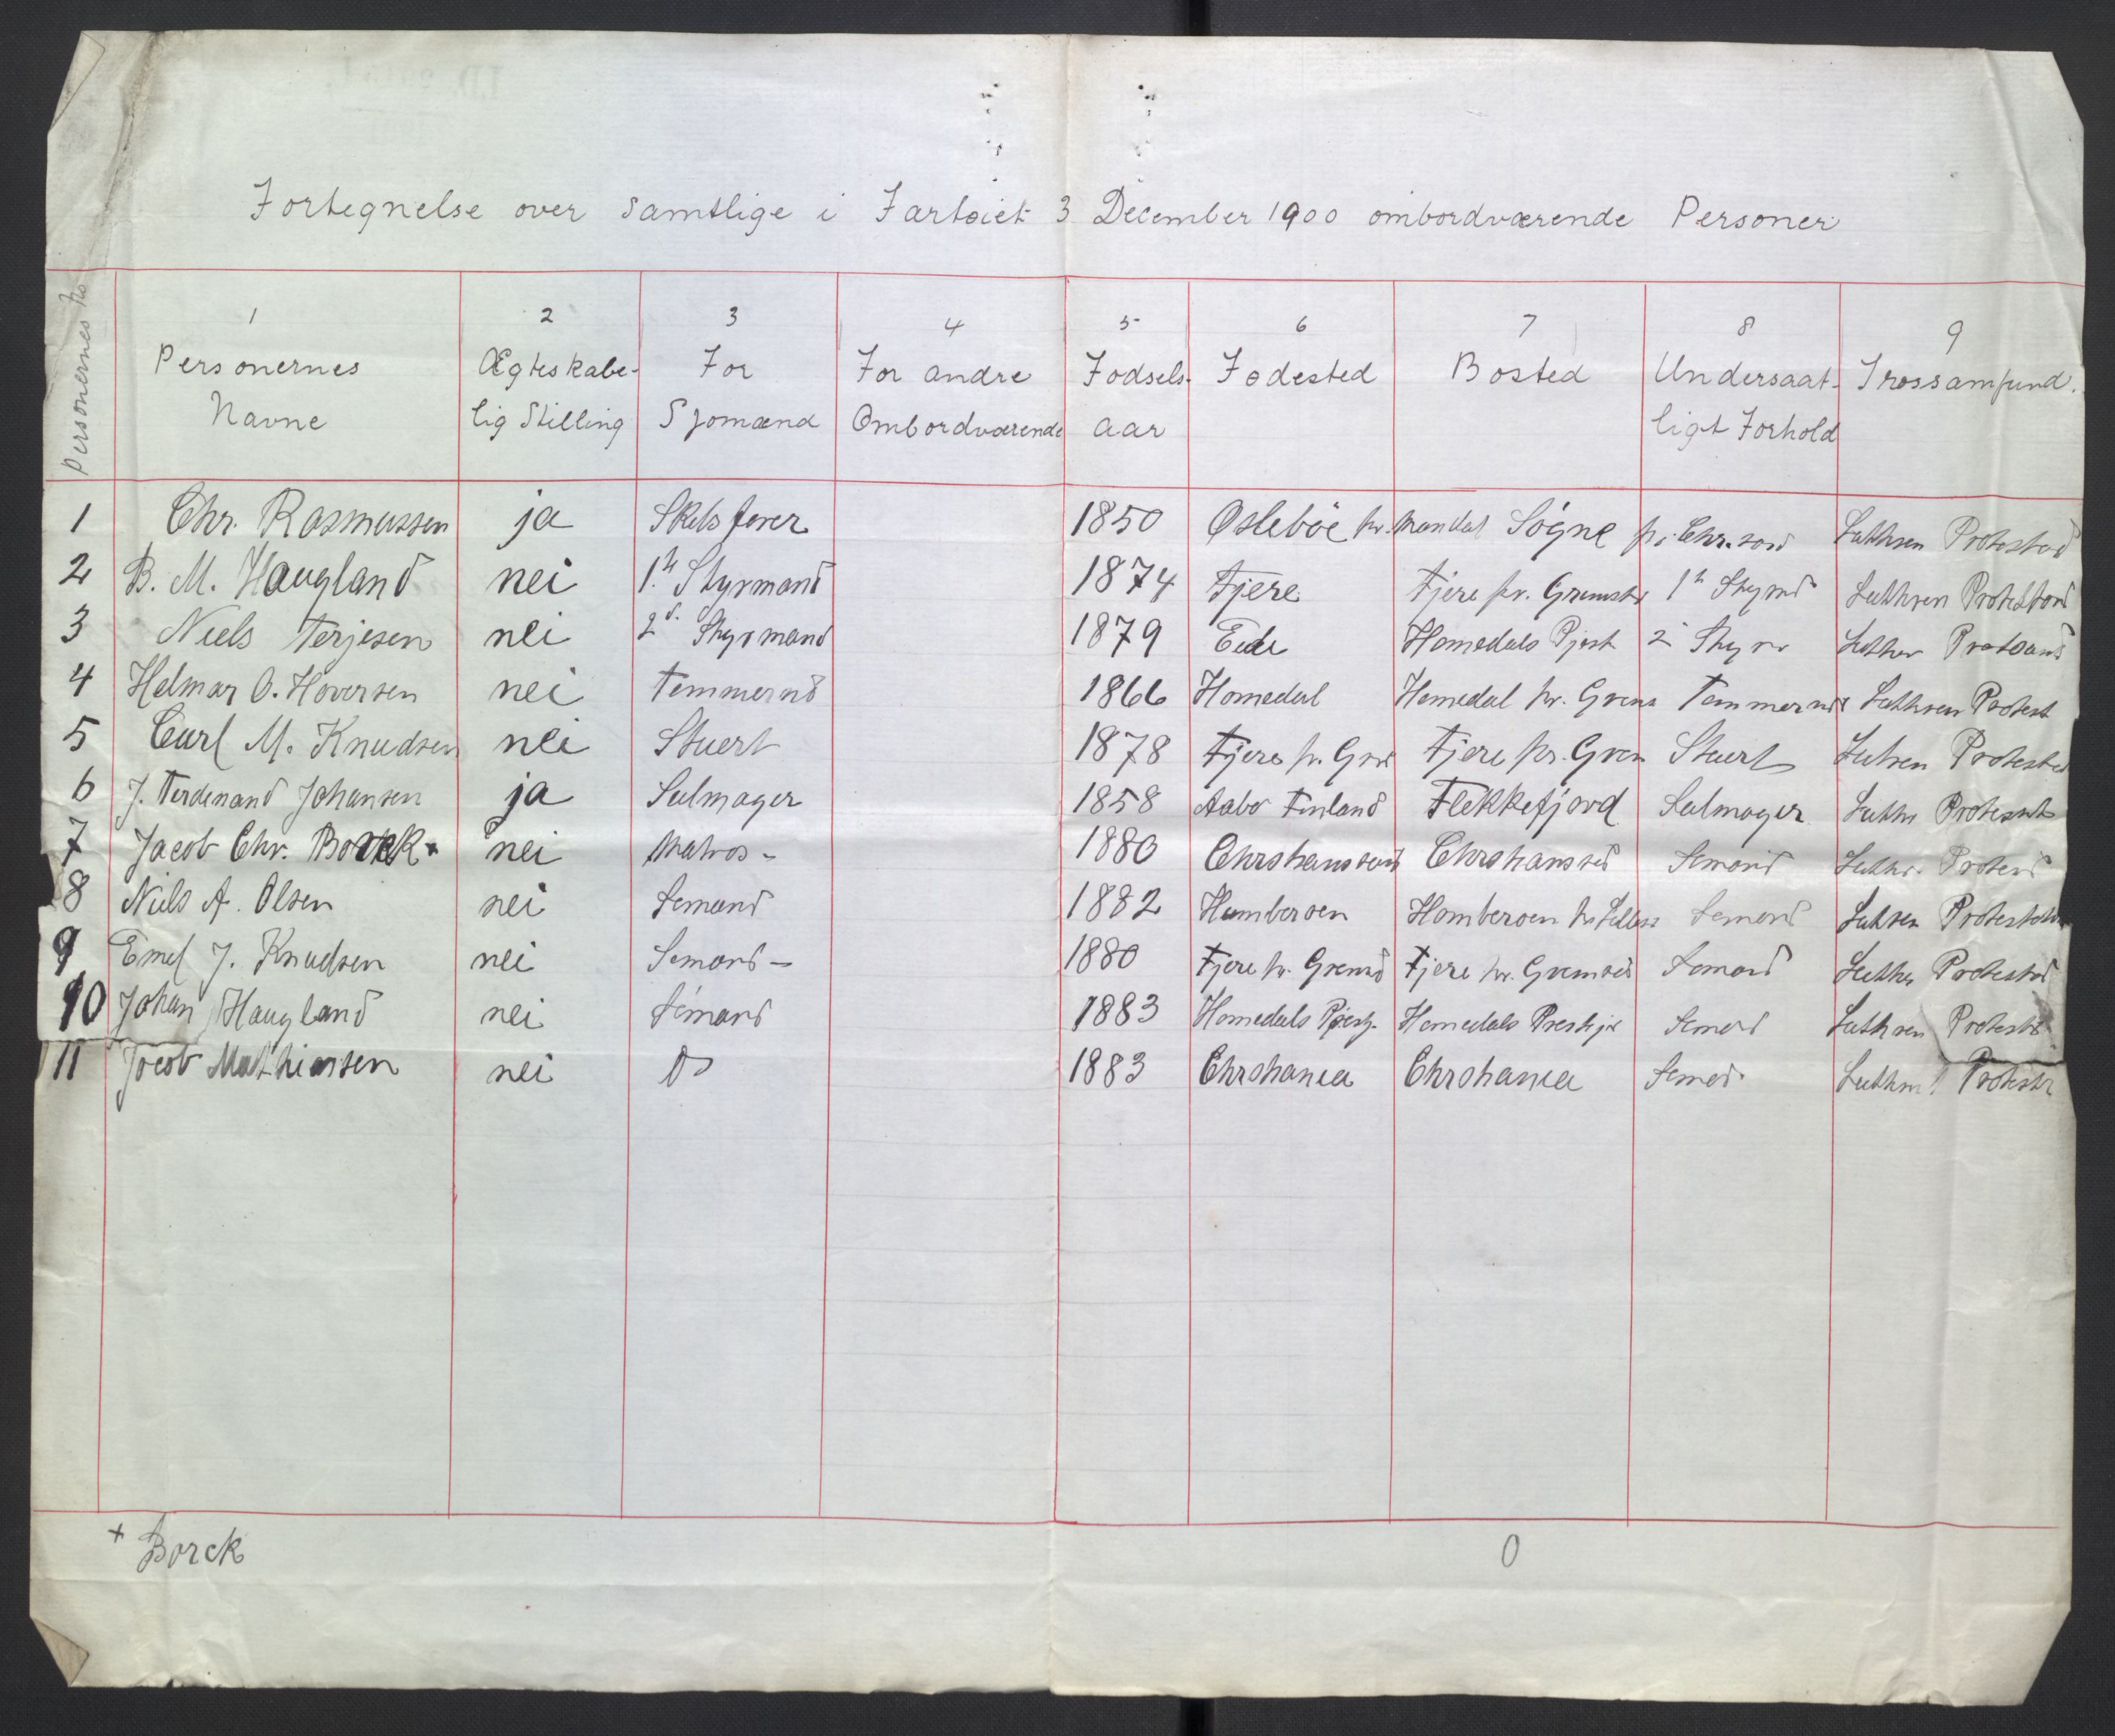 Fortegnelse over samtlige i Fartøiet 3 December 1900 ombordværende Personer
Personernes No
1 2 3 4 5 6 7 8 9
Personernes Navne Ægteskabelig Stilling For Sjomænd For andre Ombordværende Fodsels-aar Fødested Bosted Undersaat-ligt Forhold Trossamfund.
1 Chr. Rasmussen ja Skibsfører 1850 Øslebøe pr. Mandal Søgne pr. Chr.sand Luthren Protestand
2 B. M. Haugland nei 1.st Styrmand 1874 Fjere Fjere pr. Grimstd 1st Styrmd Luthren Protestand
3 Niels Terjesen nei 2d. Styrmand 1879 Eide Homedals Pjest 2 Styrm Luther Protestand
4 Helmar O. Hoversen nei Temmermd 1866 Homedal Homedal pr. Grims Temmermd Luthren Protest
5 Carl M. Knudsen nei Stuert 1878 Fjere pr. Grm Fjere pr. Grem Stuert Luthren Protested
6 J. Ferdenand Johansen ja Selmager 1858 Aabo Finland Flekkefjord Selmager Luthr Protestnt
7 Jacob Chr. Borck + nei Matros - 1880 Chrshanssand Chrshanssed Semand Luthr. Protend
8 Niels A. Olsen nei Semand 1882 Homborøen Homborøen pr. Lillesa Semand Luthren Protestant
9 Emel J. Knudsen nei Semand - 1880 Fjere pr. Gremsd Fjere pr. Gremsed Semand Luther Protestnd
10 Johan Haugland nei Semand 1883 Homedals Pjest. Homedals Prestgj Semand Luthren Protestn
11 Jocob Mathiassen nei Do 1883 Chrshania Chrshania Semed Luthrn Protestn
+ Borck 0